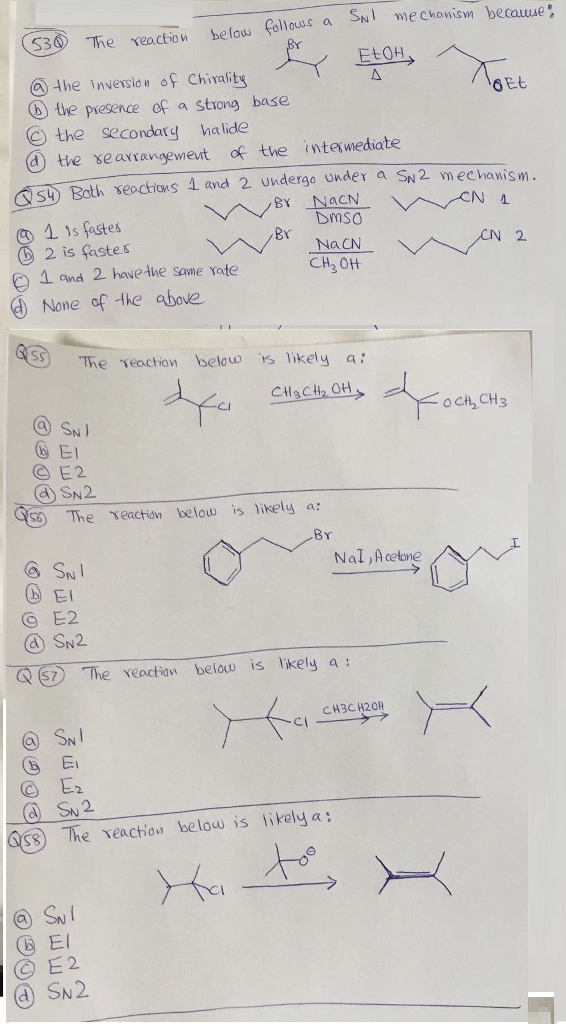 53Q The reaction below follows a SN1 mechanism because:
Br
EtOH
Δ
OEt
(a) the inversion of Chirality
(b) the presence of a strong base
(c) the secondary halide
(d) the rearrangement of the intermediate
Q54 Both reactions 1 and 2 undergo under a SN2 mechanism.
Br NaCN CN 1
DMSO
(a) 1 is faster
Br NaCN CN 2
(b) 2 is faster
CH3OH
(c) 1 and 2 have the same rate
(d) None of the above
Q55 The reaction below is likely a:
Cl CH3CH2OH OCH2CH3
(a) SN1
(b) E1
(c) E2
(d) SN2
Q56 The reaction below is likely a:
Br NaI, Acetone I
(a) SN1
(b) E1
(c) E2
(d) SN2
Q57 The reaction below is likely a:
Cl CH3CH2OH
(a) SN1
(b) E1
(c) E2
(d) SN2
Q58 The reaction below is likely a:
O⊖
Cl
(a) SN1
(b) E1
(c) E2
(d) SN2